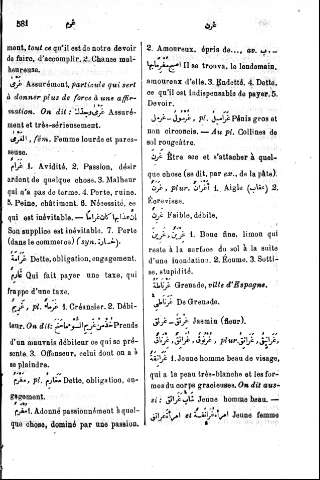 581
غرم
غرن
ment, tout ce qu'il est de notre devoir
de faire, d'accomplir. 2. Chance mal-
heureuse.
Assurément, particule qui sert
à donner plus de force à une affir-
mation. On dit : Assuré-
ment et très-sérieusement.
fém. Femme lourde et pares-
seuse.
غَرَامٌ 1. Avidité. 2. Passion, désir
ardent de quelque chose. 3. Malheur
qui n'a pas de terme. 4. Perte, ruine.
5. Peine, châtiment. 6. Nécessité, ce
qui est inévitable.
Son supplice est inévitable. 7. Perte
(dans le commerce) (syn. خسارة).
غَرَامَةٌ Dette, obligation, engagement.
Qui fait payer une taxe, qui
frappe d'une taxe.
غَرِيمٌ, pl. 1. Créancier. 2. Débi-
teur. On dit: Prends
d'un mauvais débiteur ce qui se pré-
sente 3. Offenseur, celui dont on a à
se plaindre.
pl. Dette, obligation, en-
gagement.
مُغْرَمٌ 1. Adonné passionnément à quel-
que chose, dominé par une passion.
2. Amoureux, épris de..., av. ب.
Il se trouva, le lendemain,
amoureux d'elle. 3. Endetté. 4. Dette,
ce qu'il est indispensable de payer. 5.
Devoir.
غُرْمُولٌ, pl. Pénis gros et
non circoncis. — Au pl. Collines de
sol rougeâtre.
غرن Être sec et s'attacher à quel-
que chose (se dit, par ex., de la pâte).
plur. أَغْرَانٌ 1. Aigle (عقاب). 2.
Écrevisse.
Faible, débile.
1. Boue fine, limon qui
reste à la surface du sol à la suite
d'une inondation. 2. Écume. 3. Sotti-
se, stupidité.
غَرْنَاطَةُ Grenade, ville d'Espagne.
غَرْنَاطِيٌّ De Grenade.
Jasmin (fleur).
plur.
1. Jeune homme beau de visage,
qui a la peau très-blanche et les for-
mes du corps gracieuses. On dit aus-
si : Jeune homme beau. —
et Jeune femme